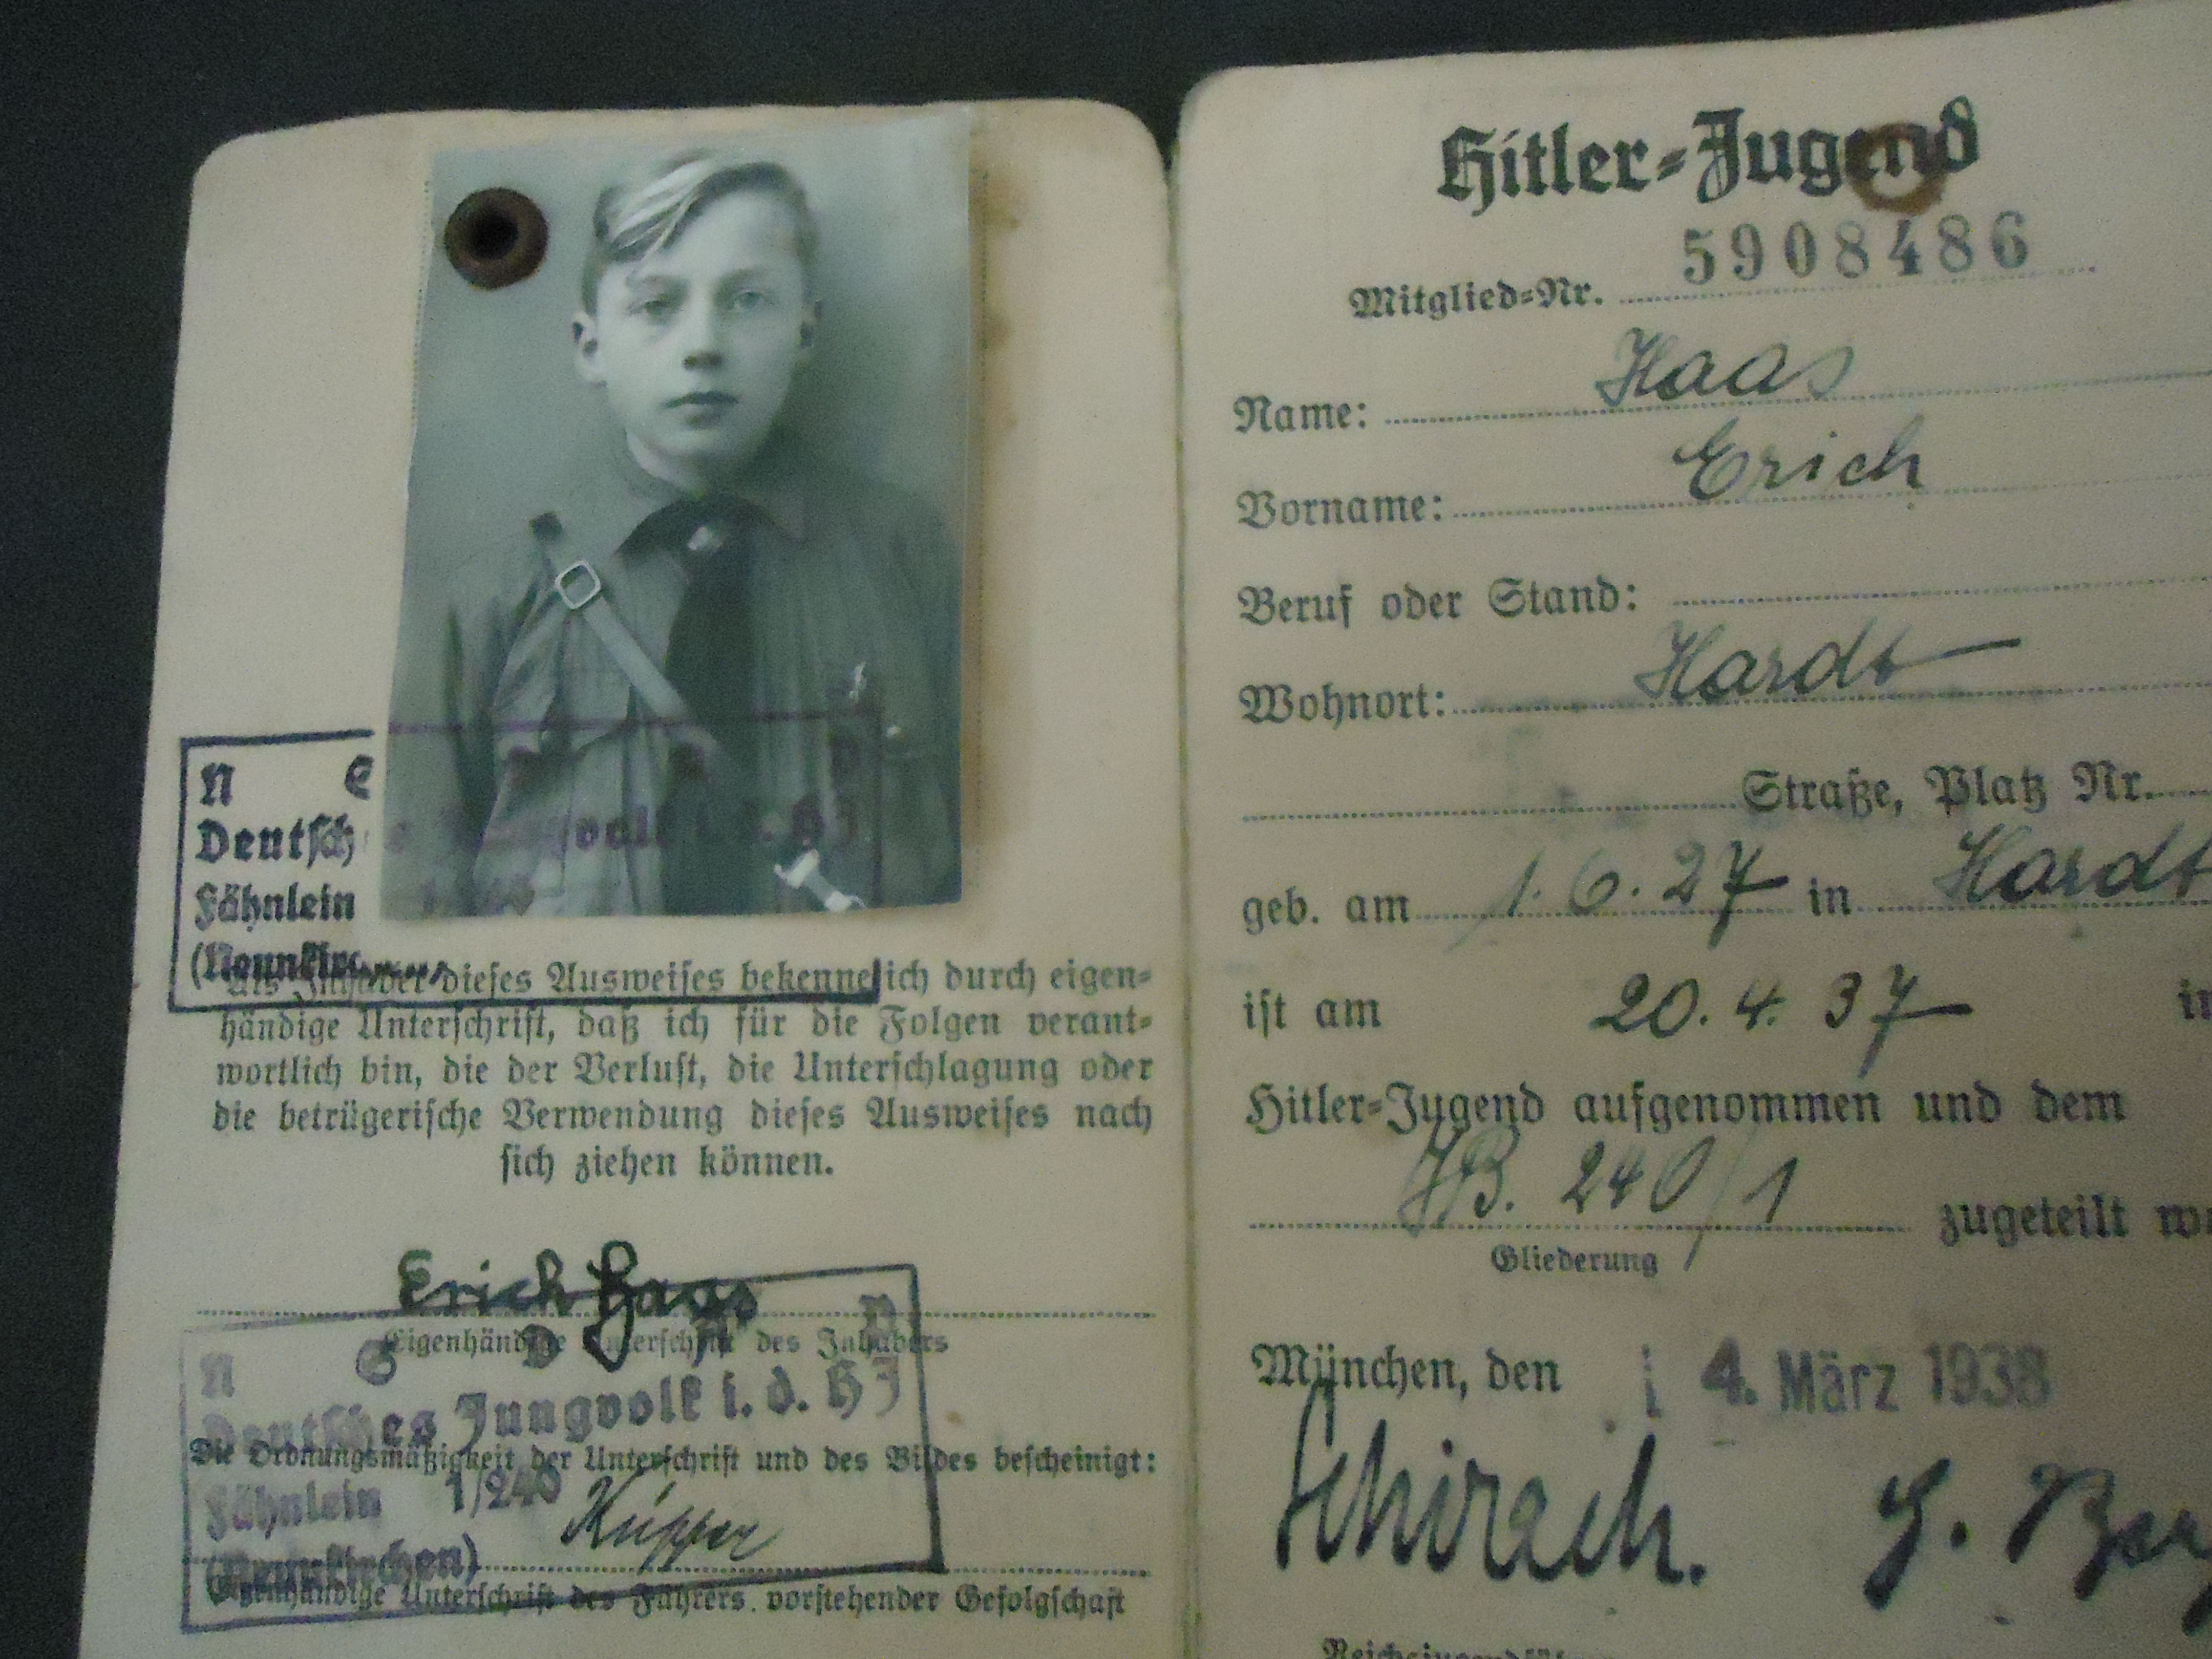 N S
Deutsches Jungvolk i. d. HJ
Fähnlein
(Neunkirchen)
dieses Ausweises bekenne ich durch eigen-
händige Unterschrift, daß ich für die Folgen verant-
wortlich bin, die der Verlust, die Unterschlagung oder
die betrügerische Verwendung dieses Ausweises nach
sich ziehen können.
Erich Haas
Eigenhändige Unterschrift des Inhabers
N S D A P
Deutsches Jungvolk i. d. HJ
Die Ordnungsmäßigkeit der Unterschrift und des Bildes bescheinigt:
Fähnlein 1/240
Küpper
(Neunkirchen)
Eigenhändige Unterschrift des Führers vorstehender Gefolgschaft
Hitler-Jugend
Mitglied-Nr. 5908486
Name: Haas
Vorname: Erich
Beruf oder Stand:
Wohnort: Hardt
Straße, Platz Nr.
geb. am 1. 6. 27 in Hardt
ist am 20. 4. 37 in
Hitler-Jugend aufgenommen und dem
JB. 240/1 zugeteilt
Gliederung
München, den 4. März 1938
Schirach.